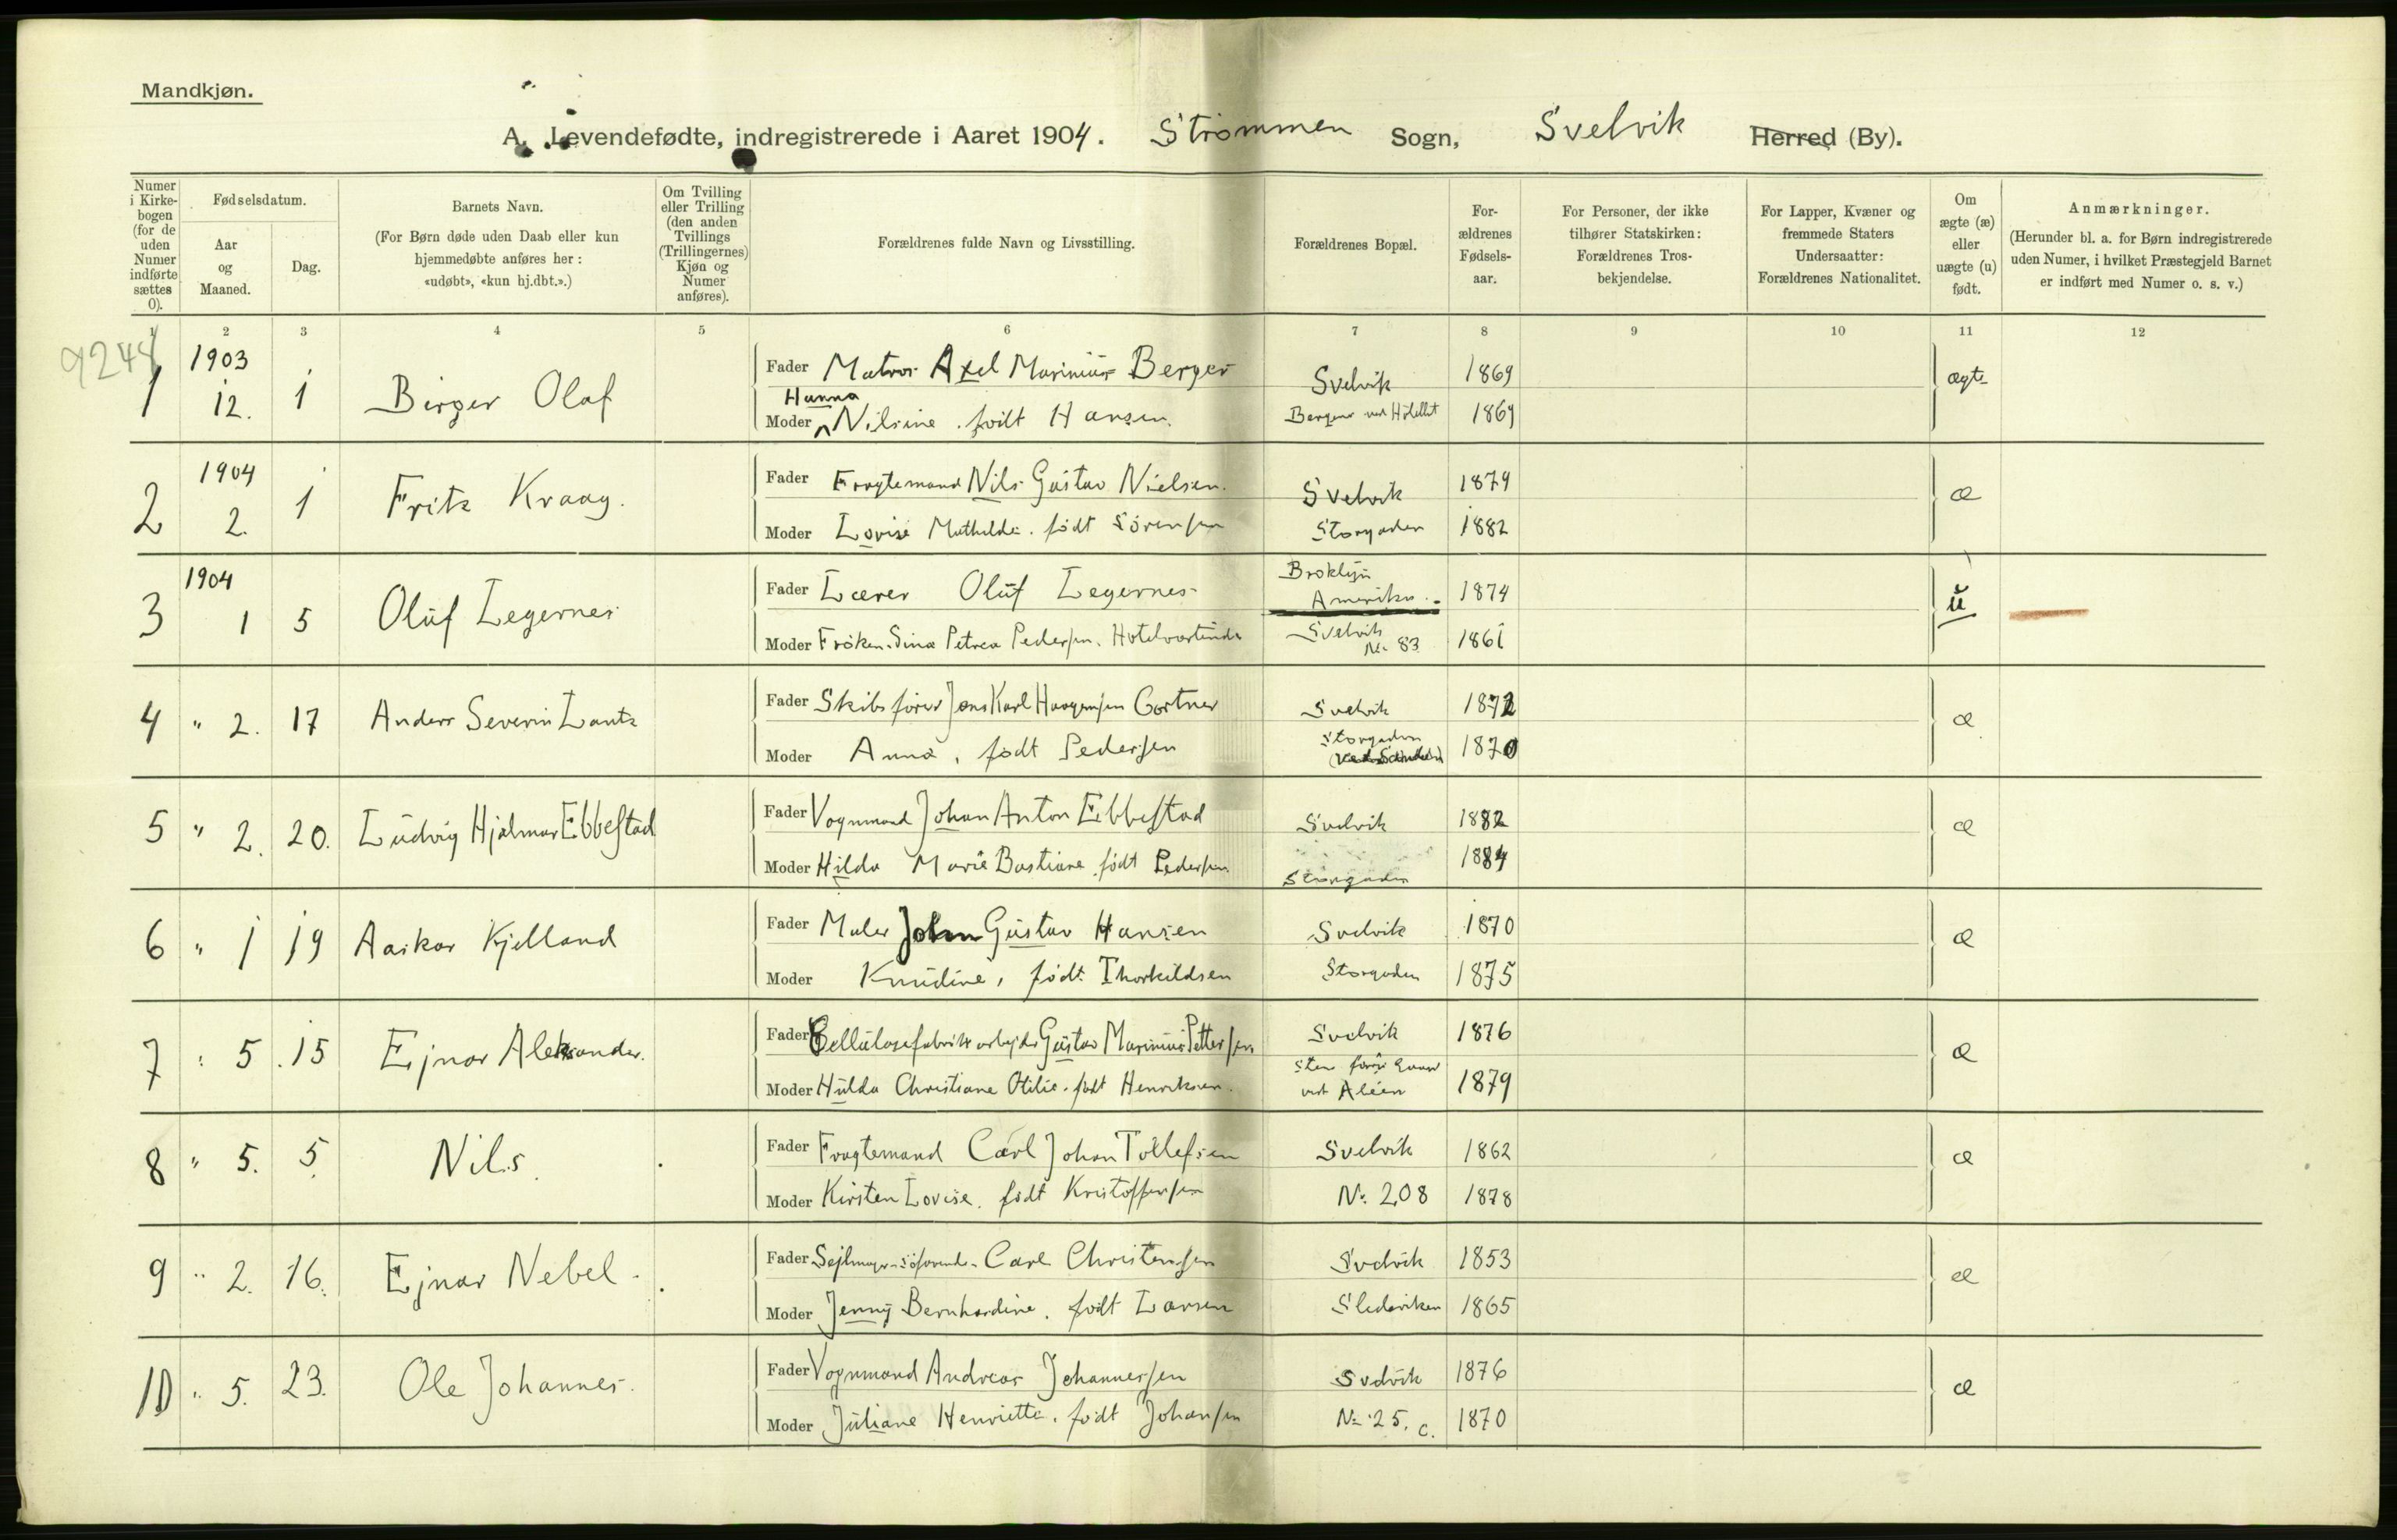 Mandkjøn.
A. Levendefødte, indregistrerede i Aaret 1904. Strømmen Sogn, Svelvik Herred (By).
Numer i Kirkebogen (for de uden Numer indførte sættes 0).
Fødselsdatum.
Aar og Maaned.
Dag.
Barnets Navn.
(For Børn døde uden Daab eller kun hjemmedøbte anføres her: «udøbt», «kun hj.dbt.».)
Om Tvilling eller Trilling (den anden Tvillings (Trillingernes) Kjøn og Numer anføres).
Forældrenes fulde Navn og Livsstilling.
Forældrenes Bopæl.
Forældrenes Fødselsaar.
For Personer, der ikke tilhører Statskirken: Forældrenes Trosbekjendelse.
For Lapper, Kvæner og fremmede Staters Undersaatter: Forældrenes Nationalitet.
Om ægte (æ) eller uægte (u) født.
Anmærkninger.
(Herunder bl. a. for Børn indregistrerede uden Numer, i hvilket Præstegjeld Barnet er indført med Numer o. s. v.)
1 2 3 4 5 6 7 8 9 10 11 12
9244
1 1903 12. 1 Birger Olaf Fader Matros Axel Marinius Berger Svelvik 1869 ægte
Moder Hanna Nilsine. født Hansen. Bergene ved Hotellet 1869
2 1904 2. 1 Fritz Kraag. Fader Fragtemand Nils Gustav Nielsen. Svelvik 1879 æ
Moder Lovise Mathilde. født Sørensen Storgaden 1882
3 1904 1 5 Oluf Legernes Fader Lærer Oluf Legernes Broklyn Amerika. 1874 u
Moder Frøken Sina Petrea Pedersen. Hotelvertinde Svelvik No. 83 1861
4 " 2. 17 Anders Severin Lantz Fader Skibsfører Jens Karl Haagensen Gortner Svelvik 1872 æ
Moder Anna, født Pedersen Storgaden 1870
5 " 2. 20. Ludvig Hjalmar Ebbestad Fader Vognmand Johan Anton Ebbestad Svelvik 1882 æ
Moder Hilda Marie Bastiane født Pedersen Storgaden 1884
6 " 1 19 Aaskar Kjelland Fader Maler John Gustav Hansen Svelvik 1870 æ
Moder Knudine, født Thorkildsen Storgaden 1875
7 " 5 15 Ejnar Aleksander. Fader Cellulosefabrikarbejder Gustav Marinius Pettersen Svelvik 1876 æ
Moder Hulda Christiane Otilie. født Henriksen. ved Aléen 1879
8 " 5. 5 Nils. Fader Fragtemand Carl Johan Tollefsen Svelvik 1862 æ
Moder Kirsten Lovise. født Kristoffersen No. 208 1878
9 " 2. 16. Ejnar Nebel. Fader Sejlmager Carl Christensen Svelvik 1853 æ
Moder Jenny Bernhardine. født Larsen Sledeviken 1865
10 " 5. 23. Ole Johannes. Fader Vognmand Andreas Johannessen Svelvik 1876 æ
Moder Juliane Henriette. født Johansen No. 25. c. 1870